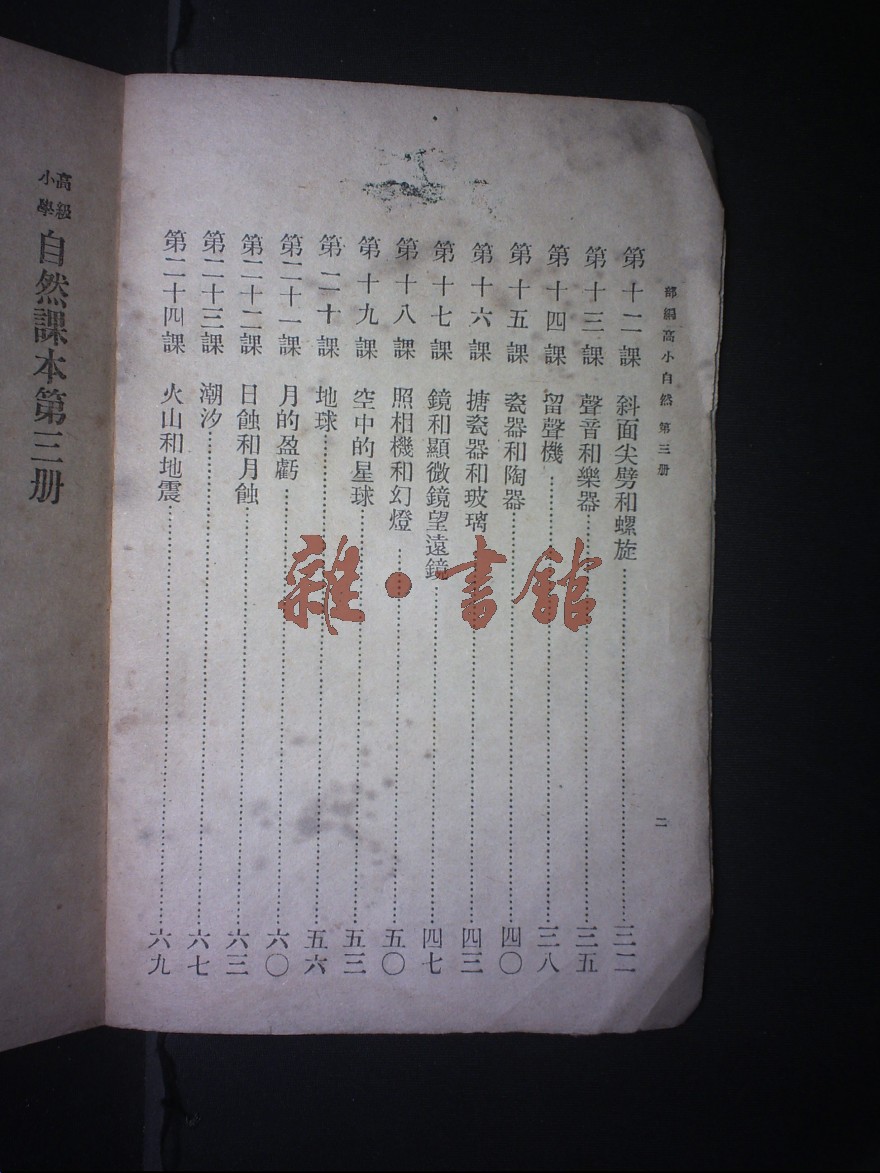 部編高小自然 第三册
二
第十二課 斜面尖劈和螺旋……三二
第十三課 聲音和樂器……三五
第十四課 留聲機……三八
第十五課 瓷器和陶器……四〇
第十六課 搪瓷器和玻璃……四三
第十七課 鏡和顯微鏡望遠鏡……四七
第十八課 照相機和幻燈……五〇
第十九課 空中的星球……五三
第二十課 地球……五六
第二十一課 月的盈虧……六〇
第二十二課 日蝕和月蝕……六三
第二十三課 潮汐……六七
第二十四課 火山和地震……六九
高級
小學
自然課本第三册
雜·書館